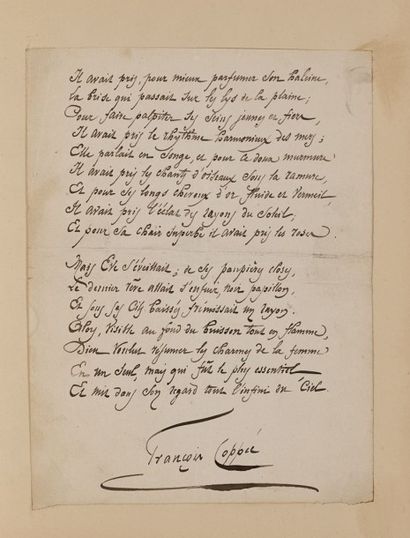 Il avait pris, pour mieux parfumer son haleine,
La brise qui passait sur les lys de la plaine;
Pour faire palpiter ses seins jeunes et fiers,
Il avait pris le rhythme harmonieux des mers;
Elle parlait en songe, et pour ce doux murmure
Il avait pris les chants d'oiseaux sous la ramure,
Et pour ses longs cheveux d'or fluide et vermeil
Il avait pris l'éclat des rayons du soleil;
Et pour sa chair superbe il avait pris les roses.
Mais Eve s'éveillait; de ses paupières closes
Le dernier rêve allait s'enfuir, noir papillon,
Et sous ses cils baissés frémissait un rayon.
Alors, visible au fond du buisson tout en flamme,
Dieu voulut résumer les charmes de la femme
En un seul, mais qui fût le plus essentiel
Et mit dans son regard tout l'infini du Ciel.
François Coppée